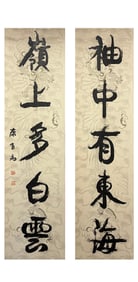 袖中有東海
嶺上多白雲